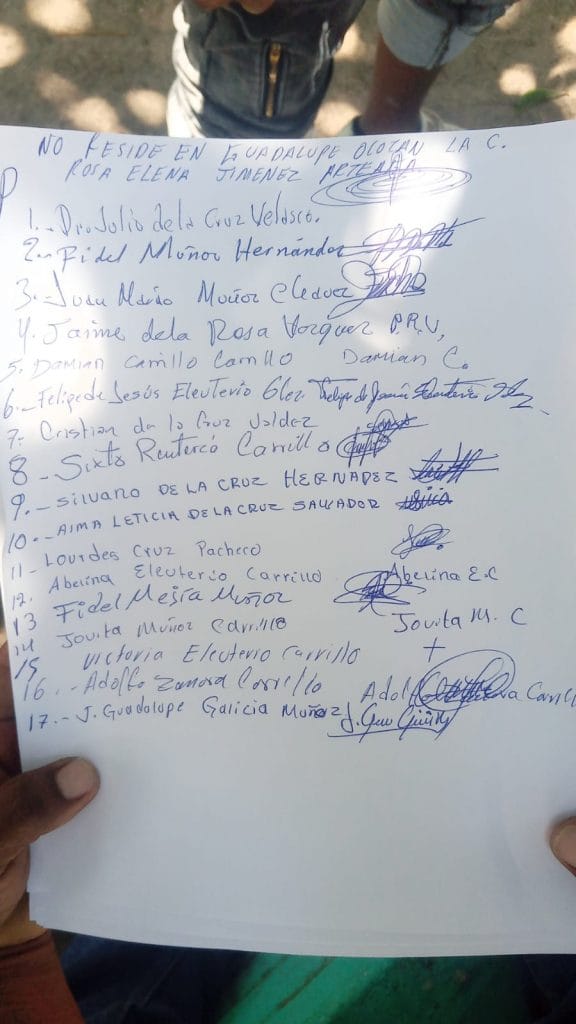 NO RESIDE EN GUADALUPE OCOTAN LA C.
ROSA ELENA JIMENEZ ARTEAGA
1.- Julio de la Cruz Velasco.
2.- Fidel Muñoz Hernández
3.- Juan Mario Muñoz Chavez
4. Jaime de la Rosa Vazquez P.R.V,
5. Damian Carrillo Carrillo Damian C.
6.- Felipe de Jesús Eleuterio Glez. Felipe de Jesús Eleuterio
7. Cristian de la Cruz Valdez
8 - Sixto Renterco Carrillo
9.- SILVANO DE LA CRUZ HERNADEZ
10.- ALMA LETICIA DE LA CRUZ SALVADOR
11- Lourdes Cruz Pacheco
12. Abelina Eleuterio Carrillo Abelina E.C
13 Fidel Mejía Muñoz
14 Jovita Muñoz Carrillo Jovita M. C
15 Victoria Eleuterio Carrillo +
16.- Adolfo Zamora Carrillo Adolfo Carrillo
17.- J. Guadalupe Galicia Muñoz